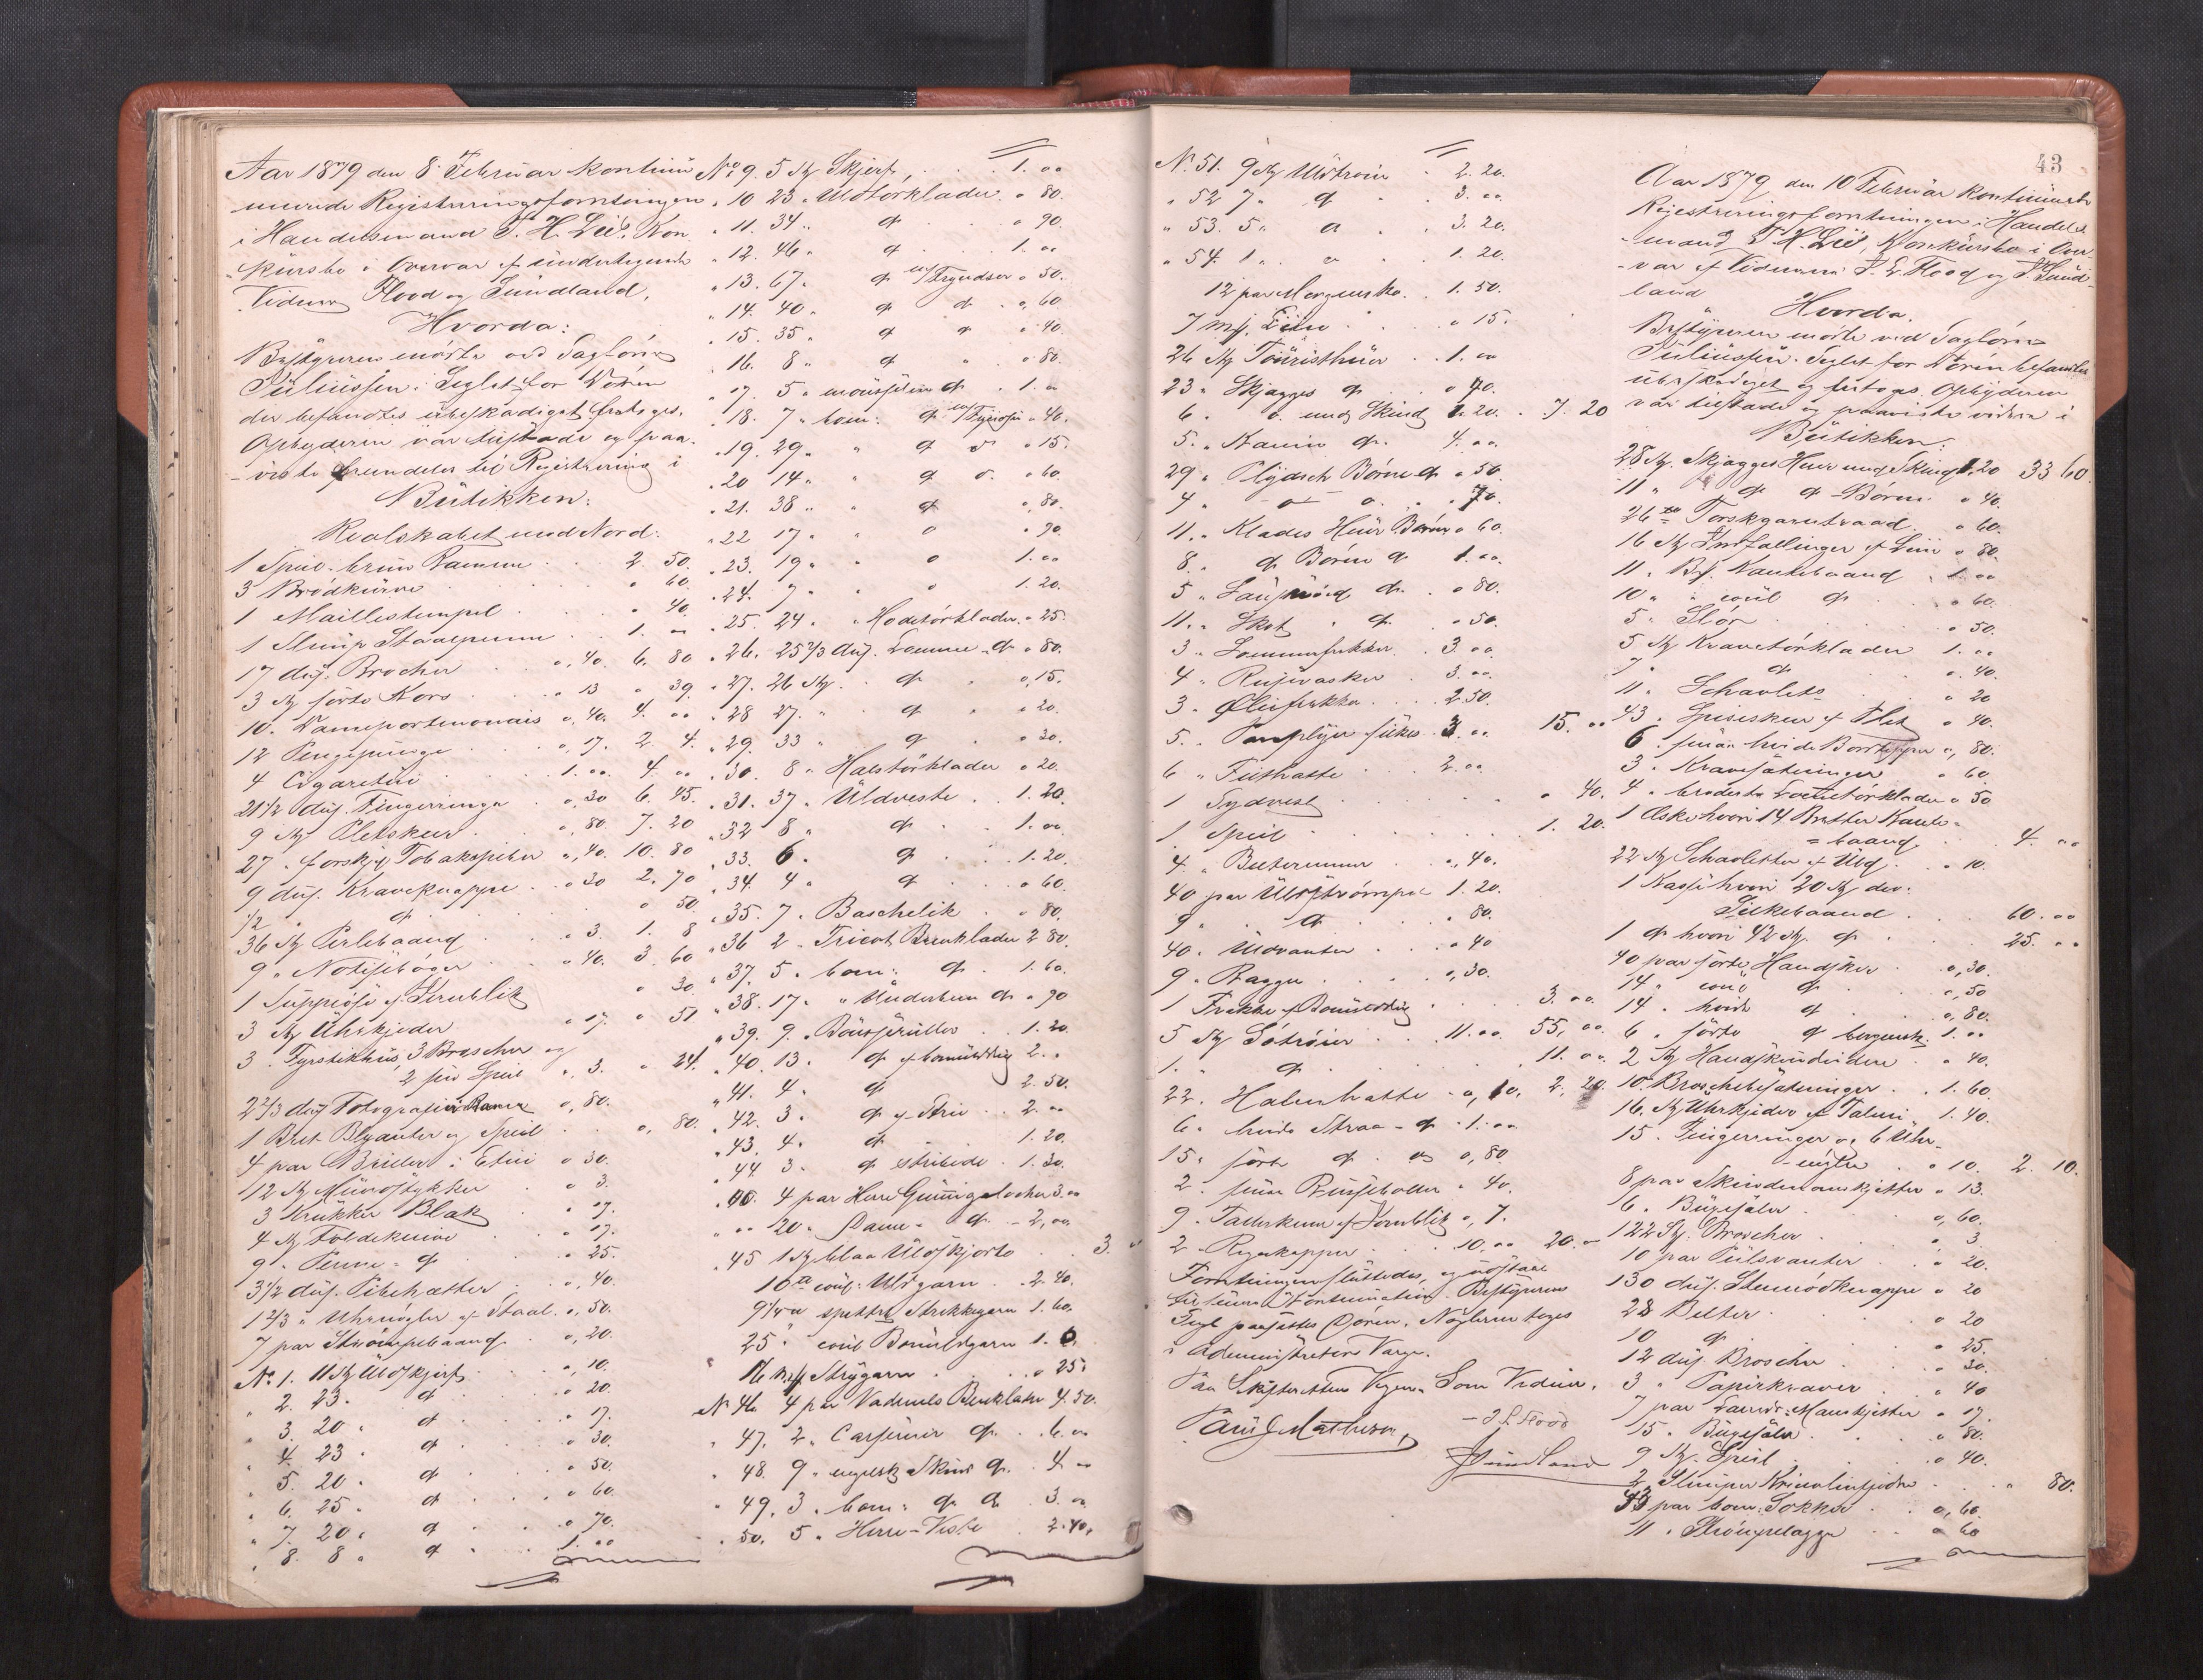 Aar 1879 den 8 Februar kontinu
erede Registreringsforretningen
i Handelsmand T. H. Lies Kon
kursbo i Overvær af undertegnede
Vidner Flood og Sundland,
Hvorda:
Bestyreren mødte ved Sagfører
Juliussen. Seglet for Døren
der befandtes ubeskadiget fratoges.
Opbyderen var tilstede og paa-
viste fremdeles til Registrering i
Butikken:
Realskabet mod Nord:
1 Speil brun Ramme . . 2. 50.
3 Brødkurve . . " 60.
1 Maillestempel . . " 40.
1 Staalpenne . . 1. "
17 dus. Brocher . . ", 40. 6. 80
3 St sorte Kors . . " 13 " 39.
10. Dameportemonais ", 40. 4. ""
12 Pengepunge . . ", 17. 2 4.
4 Cigaretui . . 1. "" 4. ""
21 1/2 dus. Fingerringe . ", 30 6. 45.
9 St Pletskeer . . ", 80. 7. 20
27 " forskj. Tobakspiber ", 40. 10. 80
9 dus. Kraveknappe . . " 30 2. 70
1/2 " do . . " 50.
36 St Perlebaand . . " 3 1. 8
9 " Notisebøger . . " 40. 3. 60
1 af Jernblik " 30.
3 St Uhrkjeder . . " 17. " 51
3 " Fyrstikhus, 3 Broscher og
2 Speil . ", 3. " 24.
2 2/3 dus Fotografi Ramer ", 80.
1 Bret Blyanter og Speil . . ", 80.
4 par Briller i Etui " 30.
12 St Mundstykker . " 3.
3 Krukker Blæk . " 17.
4 St Foldeknive . " 17.
9 " Penne do . " 25.
3 1/2 dus. Pibehatter . ", 40.
1 2/3 " Uhrnøgler af Staal. ", 50.
7 par Strømpebaand . ", 20.
No 1. 11 St Uldskjerf . ", 10.
" 2. 23. do . " 20.
" 3. 20 " do . " 17.
" 4. 23 " do . " 30.
" 5. 20 " do . " 50.
" 6. 25 " do . " 60.
" 7. 20 " do . " 70.
" 8. 8 " do . 1. ""
No 9. 5 St Skjerf, . . 1. ""
" 10 23 " Uldtørklæder. " 80.
" 11. 34 " do . " 90.
" 12. 46 " do . 1. ""
" 13. 67. do m/ Fryndser " 50.
" 14. 40 " do do ", 60
" 15. 35 " do do " 40.
" 16. 8 " do " " 80.
" 17. 5 " mousselin do . 1. "
" 18. 7 " bom: do m/ " 40.
" 19. 29 " " do " " 15.
" 20 14 " " do " " 60.
" 21. 38 " " do ", 80.
" 22 17 " " o " 90.
" 23. 19 " " o 1. ""
" 24. 7 " " o 1. 20.
" 25. 24 " " Hodetørklæder. " 25.
" 26. 25 2/3 dus. Lomme do " 80.
" 27. 26 St. " do " ", 15.
" 28 27. " do " " 20.
" 29. 33 " do " " 30.
" 30. 8 " Halstørklæder " 20.
" 31. 37 " Uldveste . 1. 20.
" 32 8 " do . 1. ""
" 33. 6. do . 1. 20.
" 34. 4 " do . " 60.
" 35. 7. Baschelik . " 80.
" 36 2 " Tricot Benklæder 2 80.
" 37. 5 " bom: do . 1. 60.
" 38. 17 " " Underben do " 90
" 39. 9. . . 1. 20.
" 40. 13. do af bomuldtøi 2. "
" 41. 4 " do 2. 50.
" 42. 3. do af Stri . 2. ""
" 43. 4. do . 1. 20.
" 44 3. do stribede . 1. 30.
" 40. 4 par Herre Gumigalocher 3. ""
" "" 20 " Dame do - 2, ""
" 45 1 St. blaa Uldskjorte . 3. "
10 " coul: Uldgarn . 2. 40.
9 1/4 " spettet Strikkegarn 1. 60.
25 " coul Bomuldgarn 1. 6.
16 Strygarn . . " 25.
No 46 4 par Vadmels Benklæder 4. 50.
" 47. 2 " Casjemir do . 6. ""
" 48. 9 " engelsk Skind do . 4 ""
" 49. 3. bom: do do . 3. ""
" 50. 5 " Herre-Veste . 2. 40.
N. 51. 9 St Uldtrøier . 2. 20.
" 52 7 " do . 3. ""
" 53. 5 " a . 3. 20.
" 54. 1 " " . 1. 20.
12 par Morgensko . 1. 50.
7 Liin . . " 15.
26 St Touristhuer . 1. ""
23 " Skjægges do . " 70.
6. " med Skind 1. 20. . 7. 20
5. " Kanin do. 4. ""
29 " Plydsch Børne do " 50
4 " " " 70.
11. " Klædes Huer Børne " 60.
8. " do Børne do 1. ""
5 " do. . " 80.
11. " Skot " do . " 50.
3 " Sommerfrakker . 3. ""
4 " . 3. ""
3 " Oliefrakker . . 2 50.
5. " Paraplyer silkes . 3. "" 15. ""
6 " Filthatte . . 2. ""
1 Sydvest . . " 40.
1. Speil . . 1. 20.
4 " Belteremmer . ", 40.
40 par Uldstrømper 1. 20.
9 " do . " 80.
40. Uldvanter . " 40
9 " Ragger . ", 30.
1 Frakke af Bomuldtøi . . 3. ""
5 St Søtrøier . . 11. "" 55, ""
1. " do . . 11. ""
22. Halmhatte . ", 10. 2. 20.
6 " hvide Straa do . 1. ""
15. sorte do . ", 80
2. " 40.
9. Tallerkener af Jernblik ", 7.
2 Regnkapper . . 10. "" 20. "
Forretningen sluttedes, og udstaar
til senere Kontinuation. Bestyrerens
Segl paasattes Døren. Nøglerne toges
i Administrators Varge.
Paa Skifterettens Vegne. Som Vidner.
Paul J Mathesen,
J L Flood
J Sundland
43
Aar 1879 den 10 Februar kontinuerede
Registreringsforretningen i Handels
mand T H. Lies, Konkursbo i Over
vær af Vidnerne J. L. Flood og J Sund-
land
Hvorda.
Bestyreren mødte ved Sagfører
Juliussen. Seglet for Døren befandtes
ubeskadiget og fratoges. Opbyderen
var tilstede og paaviste videre i
Butikken:
28 St. Skjægges Huer med Skind 1. 20 33 60.
11 " do do Børn . " 40.
26 Torskgarntraad . " 60.
16 St Indfattinger af Liin " 80.
11. Kantebaand . 1. ""
10 " " coul do " 60.
5. Slør . . " 50.
5 St Kravetørklæder 1. ""
7 " do ". 40.
11 " Schavlets " 20
43. Spiseskeer af Plet " 40.
6. smaa hvide Bordtepper ", 80.
3. Kravesætninger . " 60
4 " broderte Lommetørklæder " 50
1 Æske hvori 14 Bretter Kante-
= baand . 4. ""
22 St Schavletter af Uld . " 10.
1 Kasse hvori 20 St div:
Silkebaand . . 60. ""
1 do hvori 42 St. do . 25. ""
40 par sorte Handsker . ", 30.
14 " coul do ", 50
14. hvide do ", 80.
6 . sorte do . 1. ""
2 St . " 40.
10. Broschebesætninger . 1. 60.
16. St Uhrkjeder af Talmi . 1. 40.
15. Fingerringer og 6 Uhr-
-nøgler . " 10. 2. 10.
8 par Skindmanskjetter " 13.
6. Bügesøler . ", 60.
122 St. Broscher . " 3
10 par Pulsvanter . " 20.
130 dus. Knappe " 20
28 Belter . " 20
10 do " 25.
12 dus. Broscher . " 30.
3 " Papirkraver . " 40
7 par Manskjetter " 17.
15. Bügesøler . " 80.
9 St. Speil . " 40.
2 . " 80.
43 par bom: Sokker . ", 60.
11. Strømpelægge . " 60